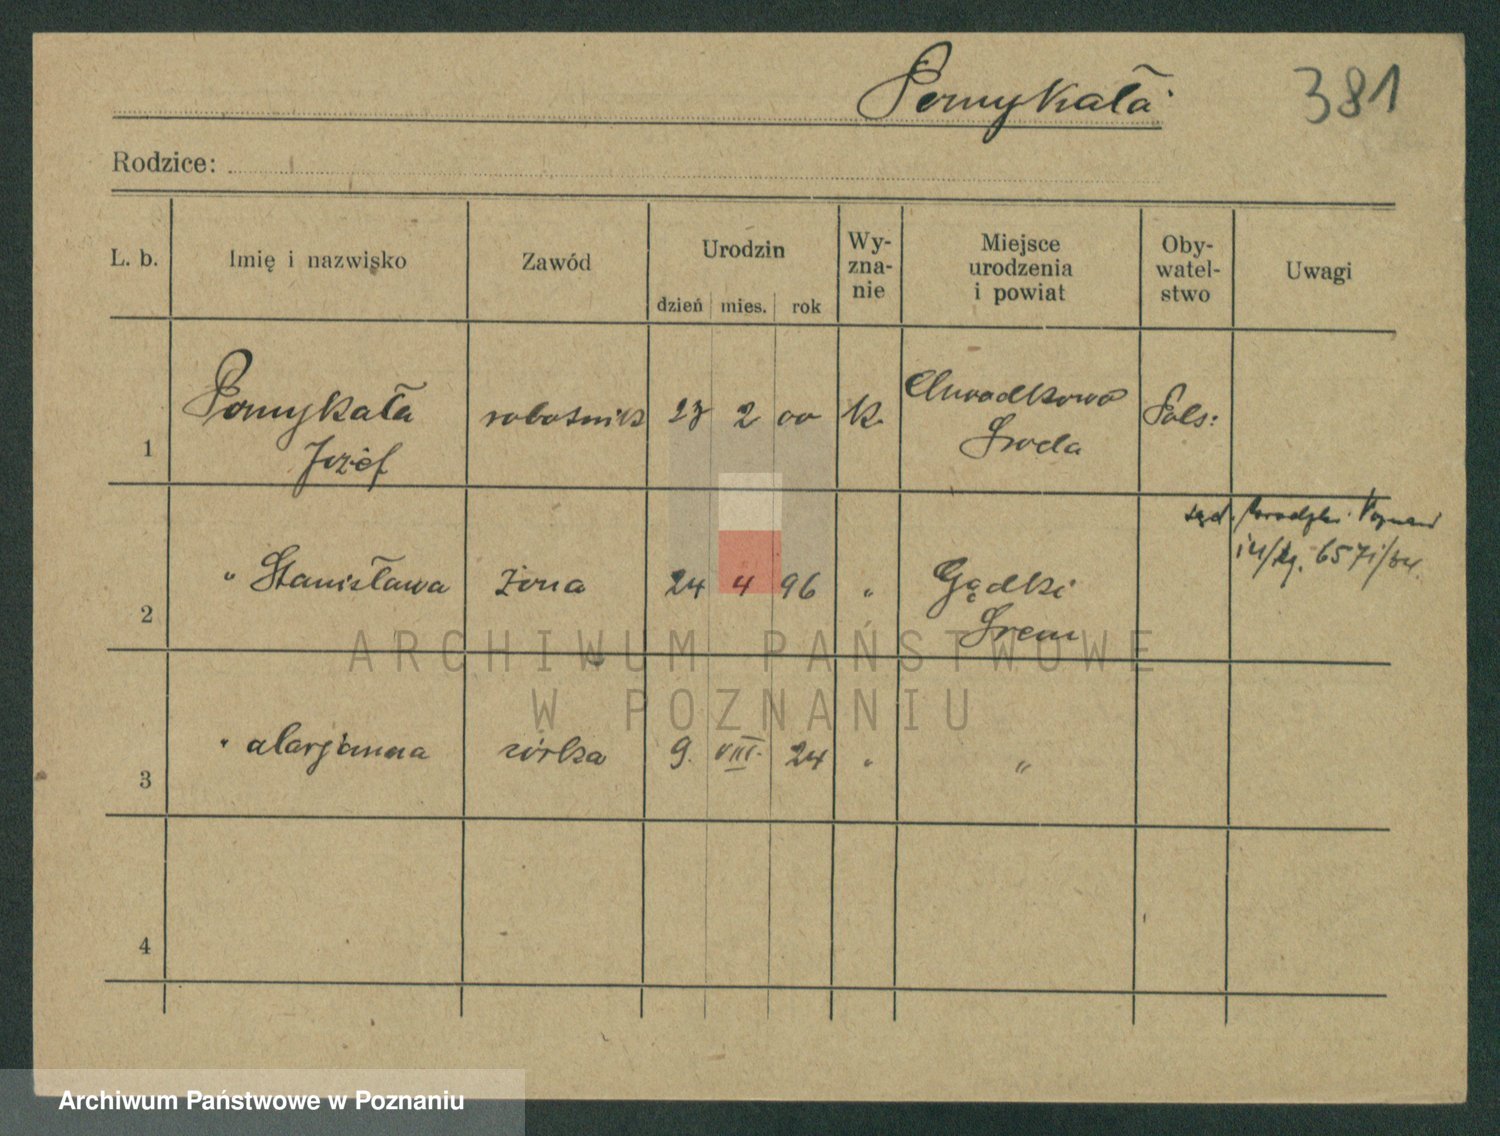 Pomykała
381
Rodzice:
L. b.
Imię i nazwisko
Zawód
Urodzin
dzień mies. rok
Wy-
zna-
nie
Miejsce
urodzenia
i powiat
Oby-
watel-
stwo
Uwagi
1
Pomykała
Józef
robotnik
23 2 00
k.
Środa
Pols:
2
" Stanisława
żona
24 4 96
"
Gądki
Śrem
3
" Marjanna
córka
9. VIII. 24
"
"
4
ARCHIWUM PAŃSTWOWE
W POZNANIU
Archiwum Państwowe w Poznaniu